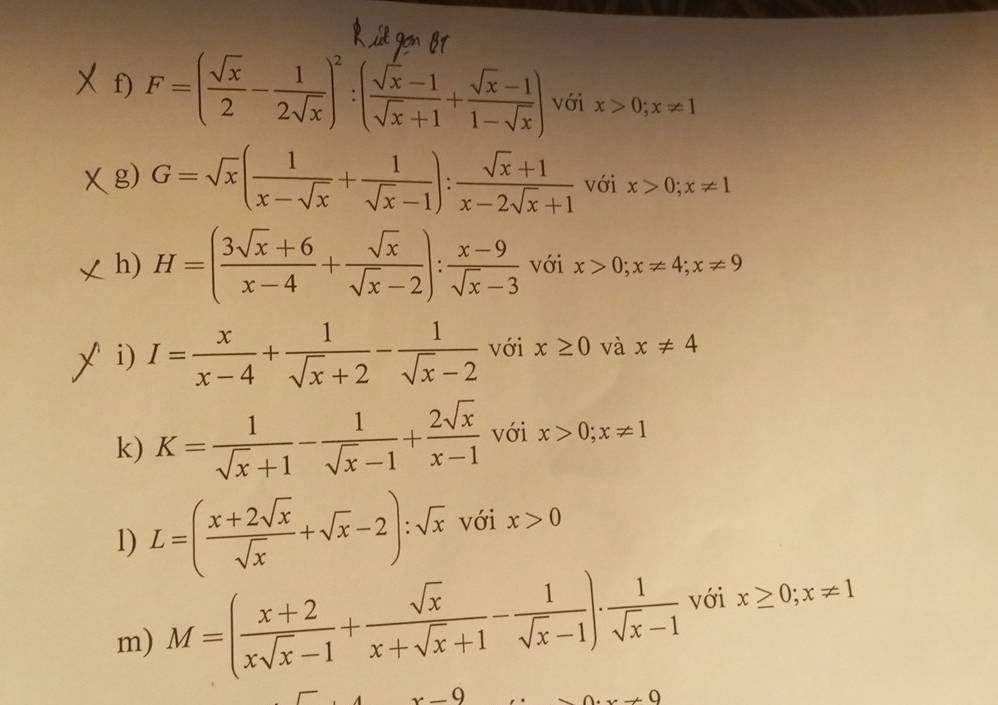 Rút gọn BT
X f) F = (√x/2 − 1/(2√x))² : ((√x − 1)/(√x + 1) + (√x − 1)/(1 − √x)) với x > 0; x ≠ 1
X g) G = √x(1/(x − √x) + 1/(√x − 1)) : (√x + 1)/(x − 2√x + 1) với x > 0; x ≠ 1
X h) H = ((3√x + 6)/(x − 4) + √x/(√x − 2)) : (x − 9)/(√x − 3) với x > 0; x ≠ 4; x ≠ 9
X i) I = x/(x − 4) + 1/(√x + 2) − 1/(√x − 2) với x ≥ 0 và x ≠ 4
k) K = 1/(√x + 1) − 1/(√x − 1) + 2√x/(x − 1) với x > 0; x ≠ 1
l) L = ((x + 2√x)/√x + √x − 2) : √x với x > 0
m) M = ((x + 2)/(x√x − 1) + √x/(x + √x + 1) − 1/(√x − 1)) . 1/(√x − 1) với x ≥ 0; x ≠ 1
x − 9